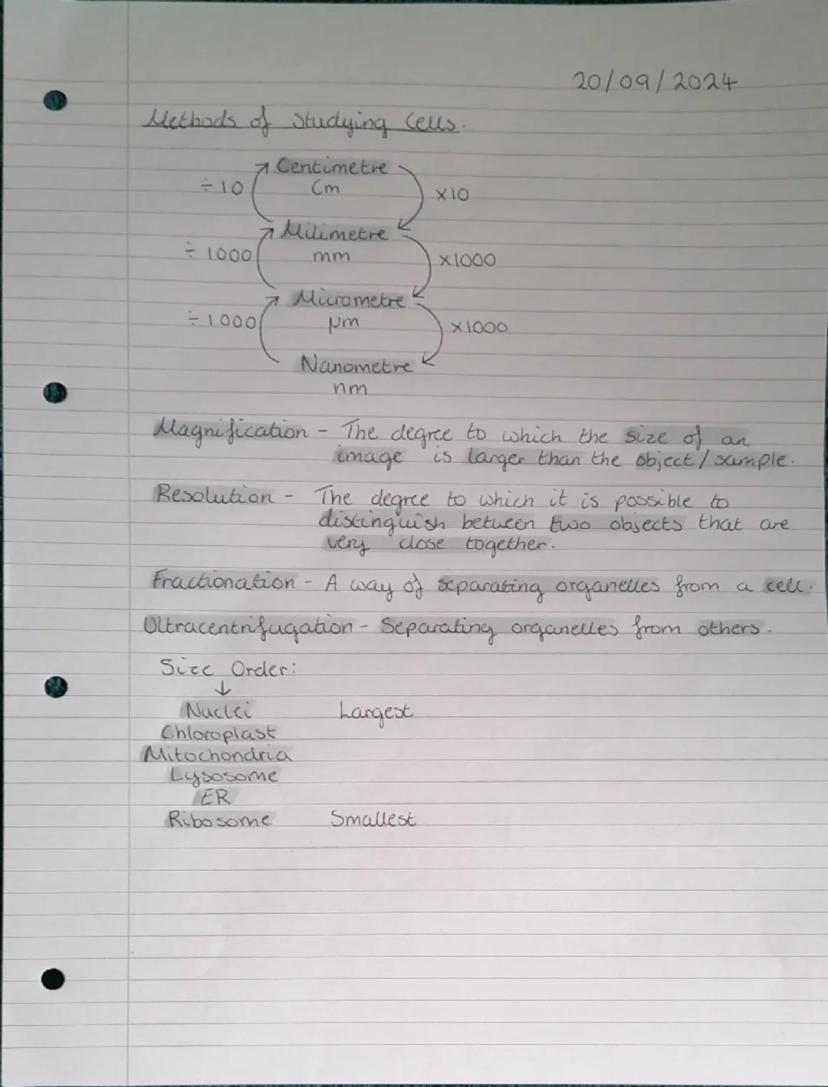 20/09/2024
Methods of Studying Cells.
Centimetre
÷10 Cm ×10
Milimetre
÷1000 mm ×1000
Micrometre
÷1000 μm ×1000
Nanometre
nm
Magnification - The degree to which the size of an
image is larger than the object/sample.
Resolution - The degree to which it is possible to
distinguish between two objects that are
very close together.
Fractionation - A way of separating organelles from a cell.
Ultracentrifugation - Separating organelles from others.
Size Order:
↓
Nuclei Largest
Chloroplast
Mitochondria
Lysosome
ER
Ribosome Smallest